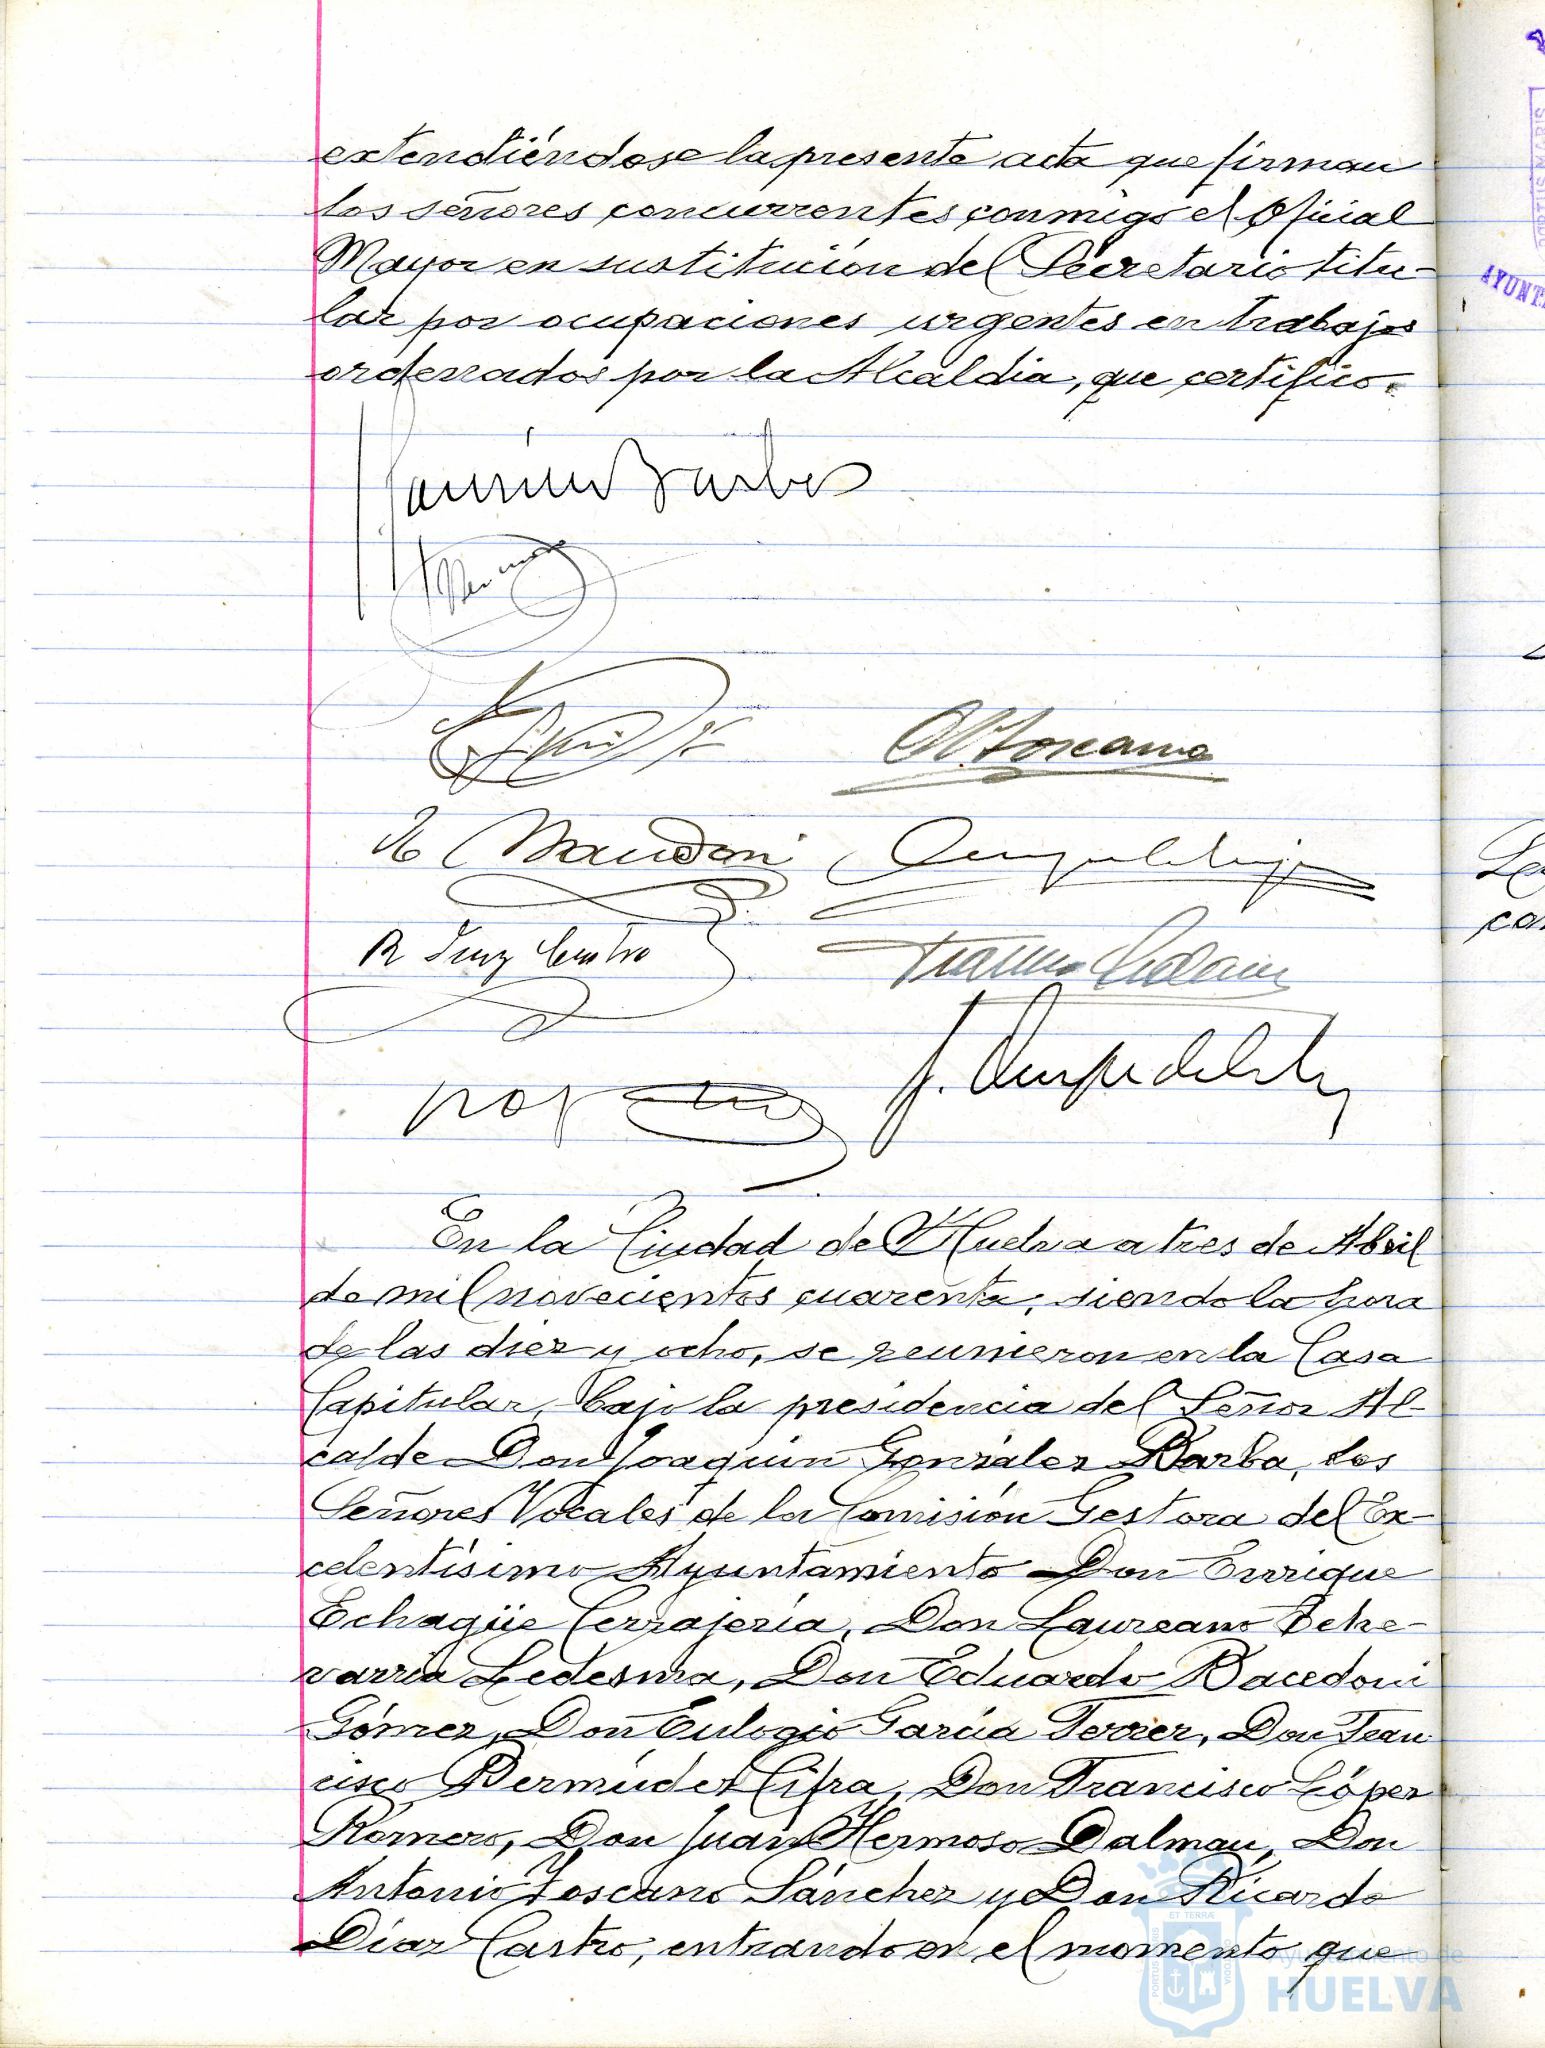 extendiéndose la presente acta que firman
los señores concurrentes conmigo el Oficial
Mayor en sustitución del Secretario titu-
lar por ocupaciones urgentes en trabajos
ordenados por la Alcaldia, que certifico.
Joaquin Barba
A Toscano
R Diaz Castro
En la Ciudad de Huelva a tres de Abril
de mil novecientos cuarenta, siendo la hora
de las diez y ocho, se reunieron en la Casa
Capitular, bajo la presidencia del Señor Al-
calde Don Joaquin González Barba, los
Señores Vocales de la Comisión Gestora del Ex-
celentísimo Ayuntamiento Don Enrique
Echagüe Cerrajería, Don Laureano Eche-
varría Ledesma, Don Eduardo Bacedoni
Gómez, Don Eulogio García Ferrer, Don Fran
cisco Bermúdez Cifra, Don Francisco López
Romero, Don Juan Hermoso Dalmau, Don
Antonio Toscano Sánchez y Don Ricardo
Díaz Castro, entrando en el momento que
Ayuntamiento de
HUELVA